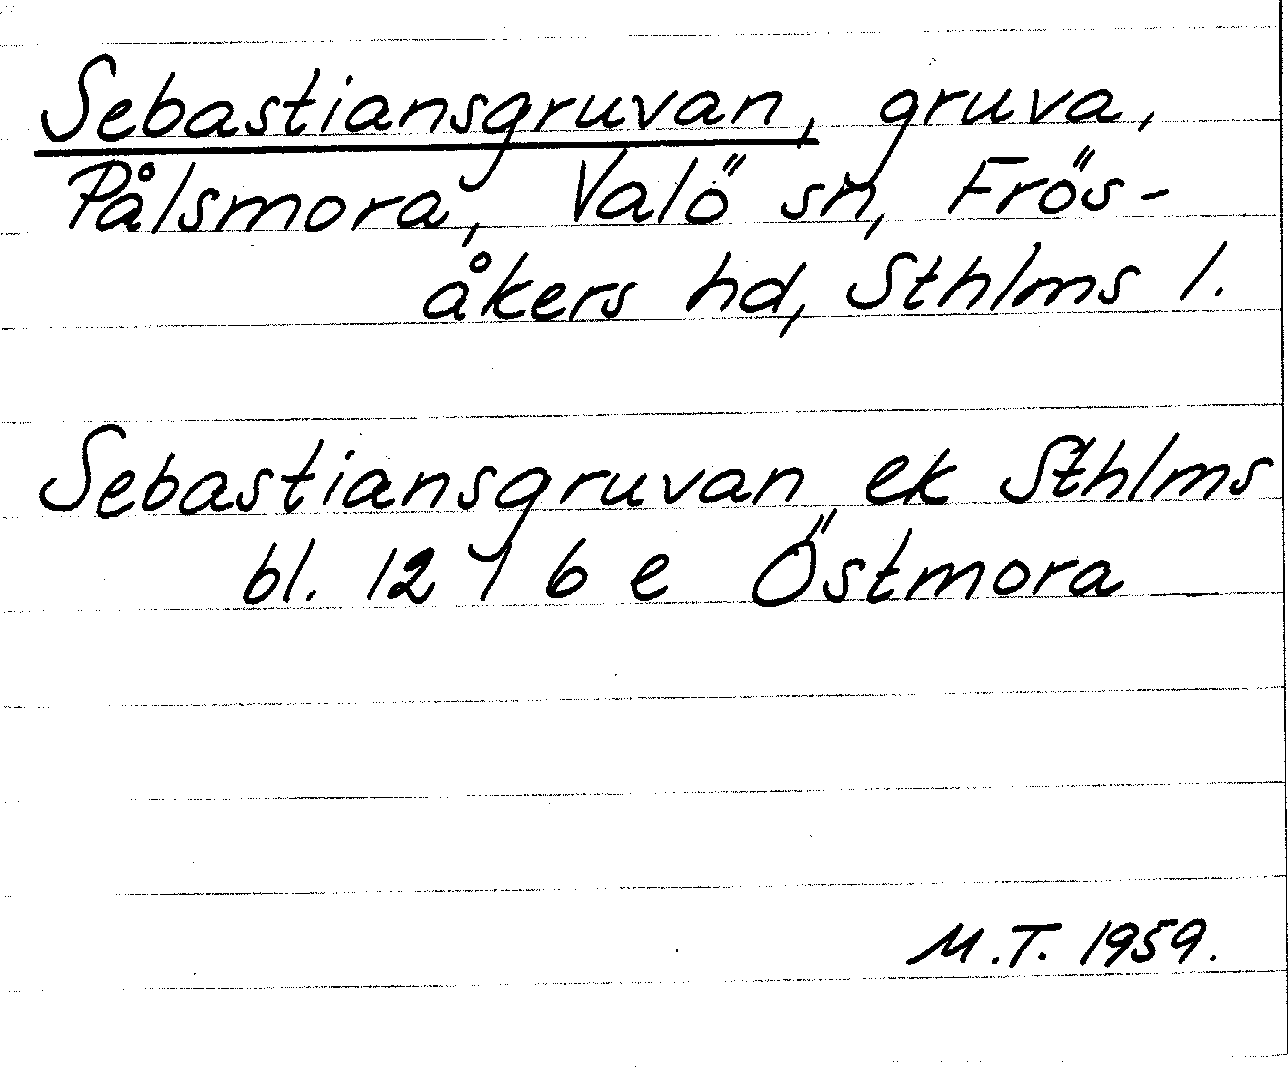 Sebastiansgruvan, gruva,
Pålsmora, Valö sn, Frös-
åkers hd, Sthlms l.
Sebastiansgruvan ek Sthlms
bl. 12 I 6 e Östmora
M.T. 1959.